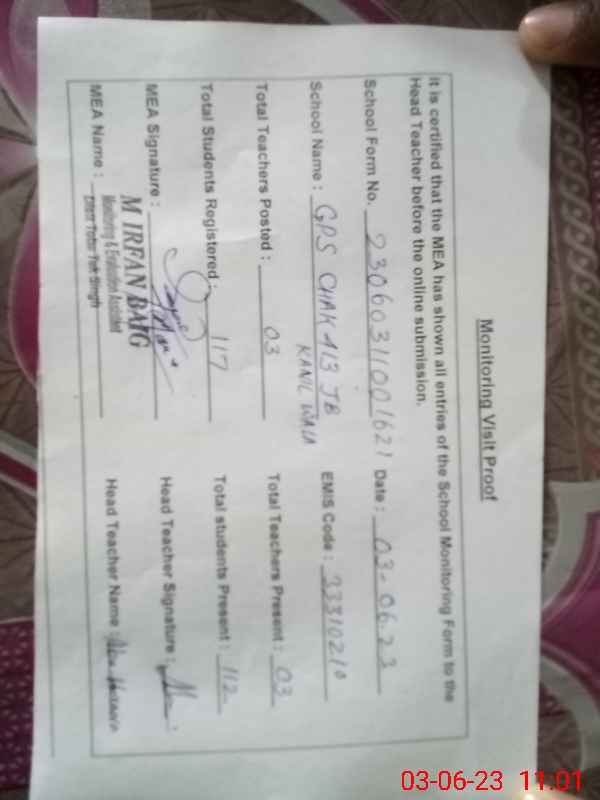 Monitoring Visit Proof
It is certified that the MEA has shown all entries of the School Monitoring Form to the
Head Teacher before the online submission.
School Form No. 2306031001621 Date : 03-06-23
School Name : GPS CHAK 413 JB EMIS Code : 33310210
KANIL WALA
Total Teachers Posted : 03 Total Teachers Present : 03
Total Students Registered : 117 Total students Present : 112
MEA Signature : Head Teacher Signature :
MEA Name : M IRFAN BAIG Head Teacher Name :
Monitoring & Evaluation Assistant
Distt Toba Tek Singh
03-06-23 11:01